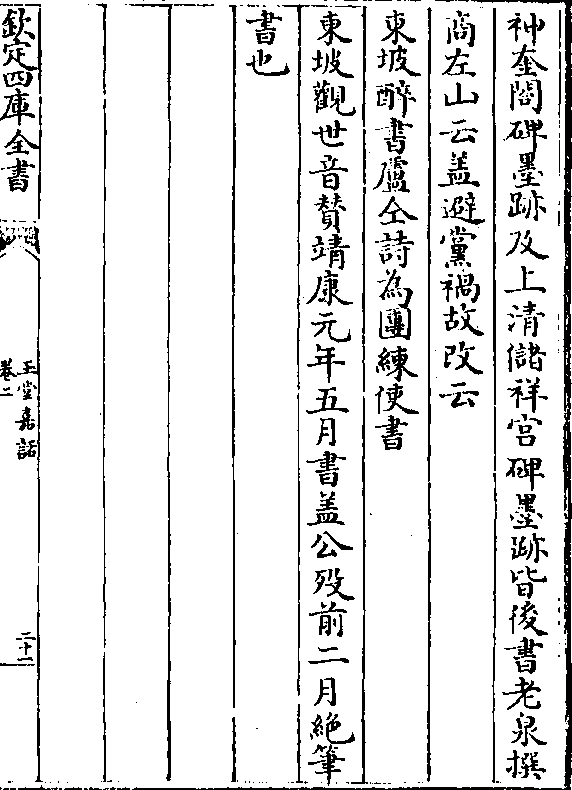 神奎閣碑墨跡及上清儲祥宫碑墨跡皆後書老泉撰
商左山云盖避黨禍故改云
東坡醉書盧仝詩為團練使書
東坡觀世音賛靖康元年五月書盖公歿前二月絶筆
書也
欽定四庫全書
玉堂嘉話
卷二
二十一